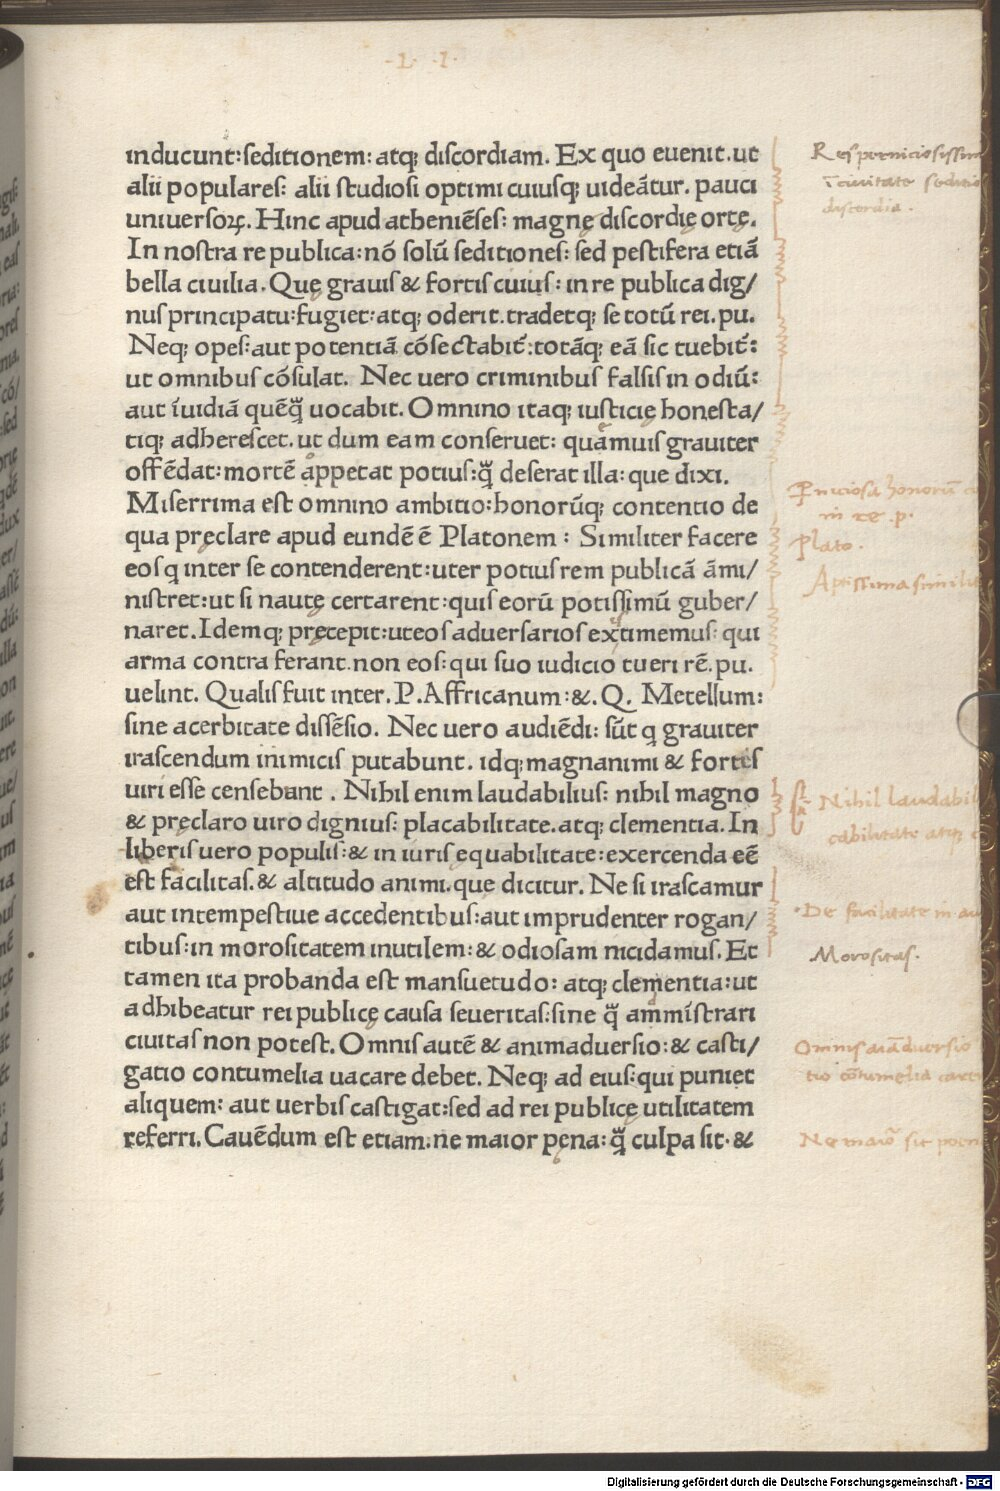 ·L· ·I·
inducunt: ſeditionem: atq; diſcordiam. Ex quo euenit. ut
alii populares: alii ſtudioſi optimi cuiuſq; uideãtur. pauci
uniuerſoꝝ. Hinc apud atheniẽſes: magnę diſcordię ortę.
In noſtra re publica: nõ ſolũ ſeditiones: ſed peſtifera etiã
bella ciuilia. Quę grauis & fortis cuius: in re publica dig/
nus principatu: fugiet: atq; oderit. tradetq; ſe totũ rei. pu.
Neq; opes: aut potentiã cõſectabit̃: totãq; eã ſic tuebit̃:
ut omnibus cõſulat. Nec uero criminibus falſis in odiũ:
aut ĩuidiã quẽq̃ uocabit. Omnino itaq; iuſticię honeſta/
tiq; adhereſcet. ut dum eam conſeruet: quãmuis grauiter
offẽdat: mortẽ appetat potius: q̃ deſerat illa: que dixi.
Miſerrima eſt omnino ambitio: honorũq; contentio de
qua pręclare apud eundẽ ẽ Platonem : Similiter facere
eos q inter ſe contenderent: uter potius rem publicã ãmi/
niſtret: ut ſi nautę certarent: quis eorũ potiſſimũ guber/
naret. Idemq; pręcepit: ut eos aduerſarios extimemus: qui
arma contra ferant. non eos: qui ſuo iudicio tueri rẽ. pu.
uelint. Qualis fuit inter. P. Affricanum: &. Q. Metellum:
ſine acerbitate diſſẽſio. Nec uero audiẽdi: ſũt q grauiter
iraſcendum inimicis putabunt. idq; magnanimi & fortes
uiri eſſe cenſebant . Nihil enim laudabilius: nihil magno
& pręclaro uiro dignius: placabilitate. atq; clementia. In
liberis uero populis: & in iuris ęquabilitate: exercenda eẽ
eſt facilitas. & altitudo animi. que dicitur. Ne ſi iraſcamur
aut intempeſtiue accedentibus: aut imprudenter rogan/
tibus: in moroſitatem inutilem: & odioſam nicidamus. Et
tamen ita probanda eſt manſuetudo: atq; clementia: ut
adhibeatur rei publicę cauſa ſeueritas: ſine q̃ amminiſtrari
ciuitas non poteſt. Omnis autẽ & animaduerſio: & caſti/
gatio contumelia uacare debet. Neq; ad eius: qui puniet
aliquem: aut uerbis caſtigat: ſed ad rei publicę utilitatem
referri. Cauẽdum eſt etiam: ne maior pęna: q̃ culpa ſit. &
Res pernicioſiſſima
ĩ ciuitate ſeditio
diſcordia.
Pnicioſa honorum
in re .p.
Plato.
Aptiſſima
Nihil laudabil
cabilitate atq;
De facilitate in
Moroſitas.
Omnis aĩaduerſio
tio cõtumelia
Ne maior ſit
Digitalisierung gefördert durch die Deutsche Forschungsgemeinschaft - DFG